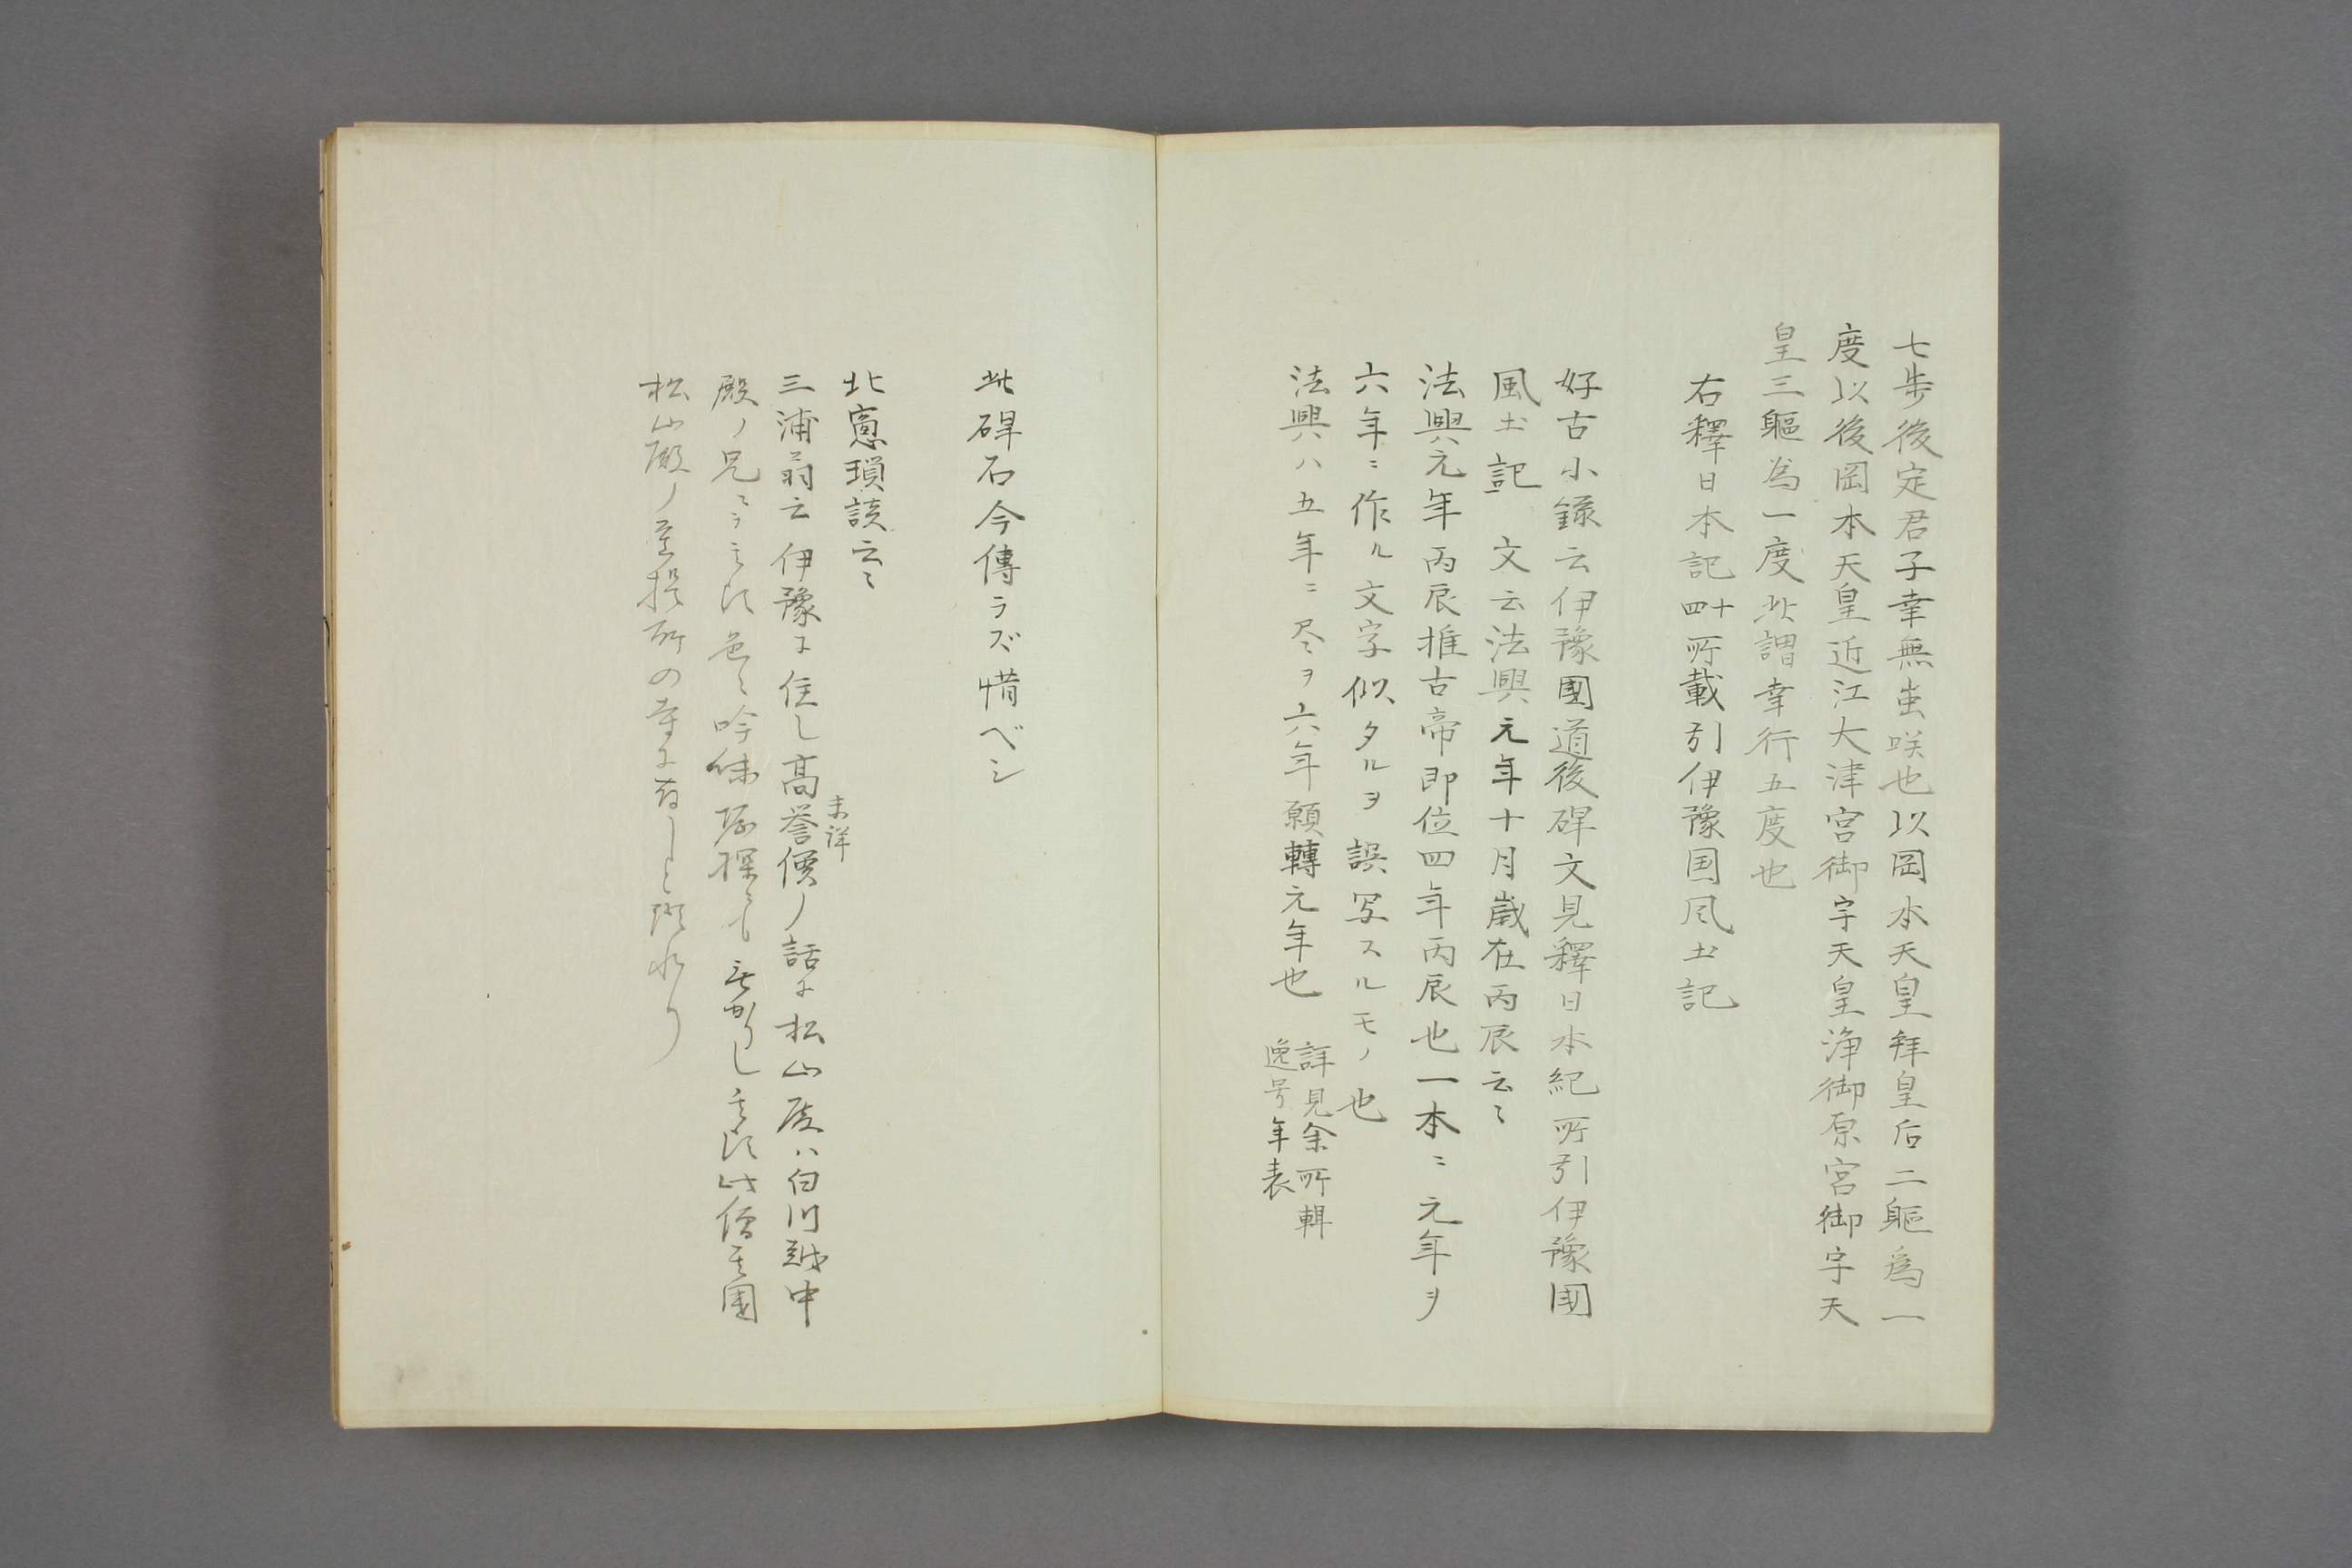 七歩後定君子幸無蚩咲也以岡本天皇拜皇后二軀為一
度以後岡本天皇近江大津宮御宇天皇淨御原宮御宇天
皇三軀為一度此謂幸行五度也
右釋日本記十四所載引伊豫国风土記
好古小録云伊豫國道後碑文見釋日本紀所引伊豫國
風土記 文云法興元年十月歳在丙辰云〻
法興元年丙辰推古帝即位四年丙辰也一本ニ元年ヲ
六年ニ作ル文字似タルヲ誤写スルモノ也
法興ハ五年ニ尽ヲ六年願轉元年也 詳見余所輯
逸号年表
此碑石今傳ラズ惜ベシ
北窻瑣談云〻
三浦翁云伊豫に住し高誉僧ノ話に松山侯ハ白川越中
未詳
殿ノ兄
色〻吟味
此僧其国
松山殿ノ菩提所の寺に